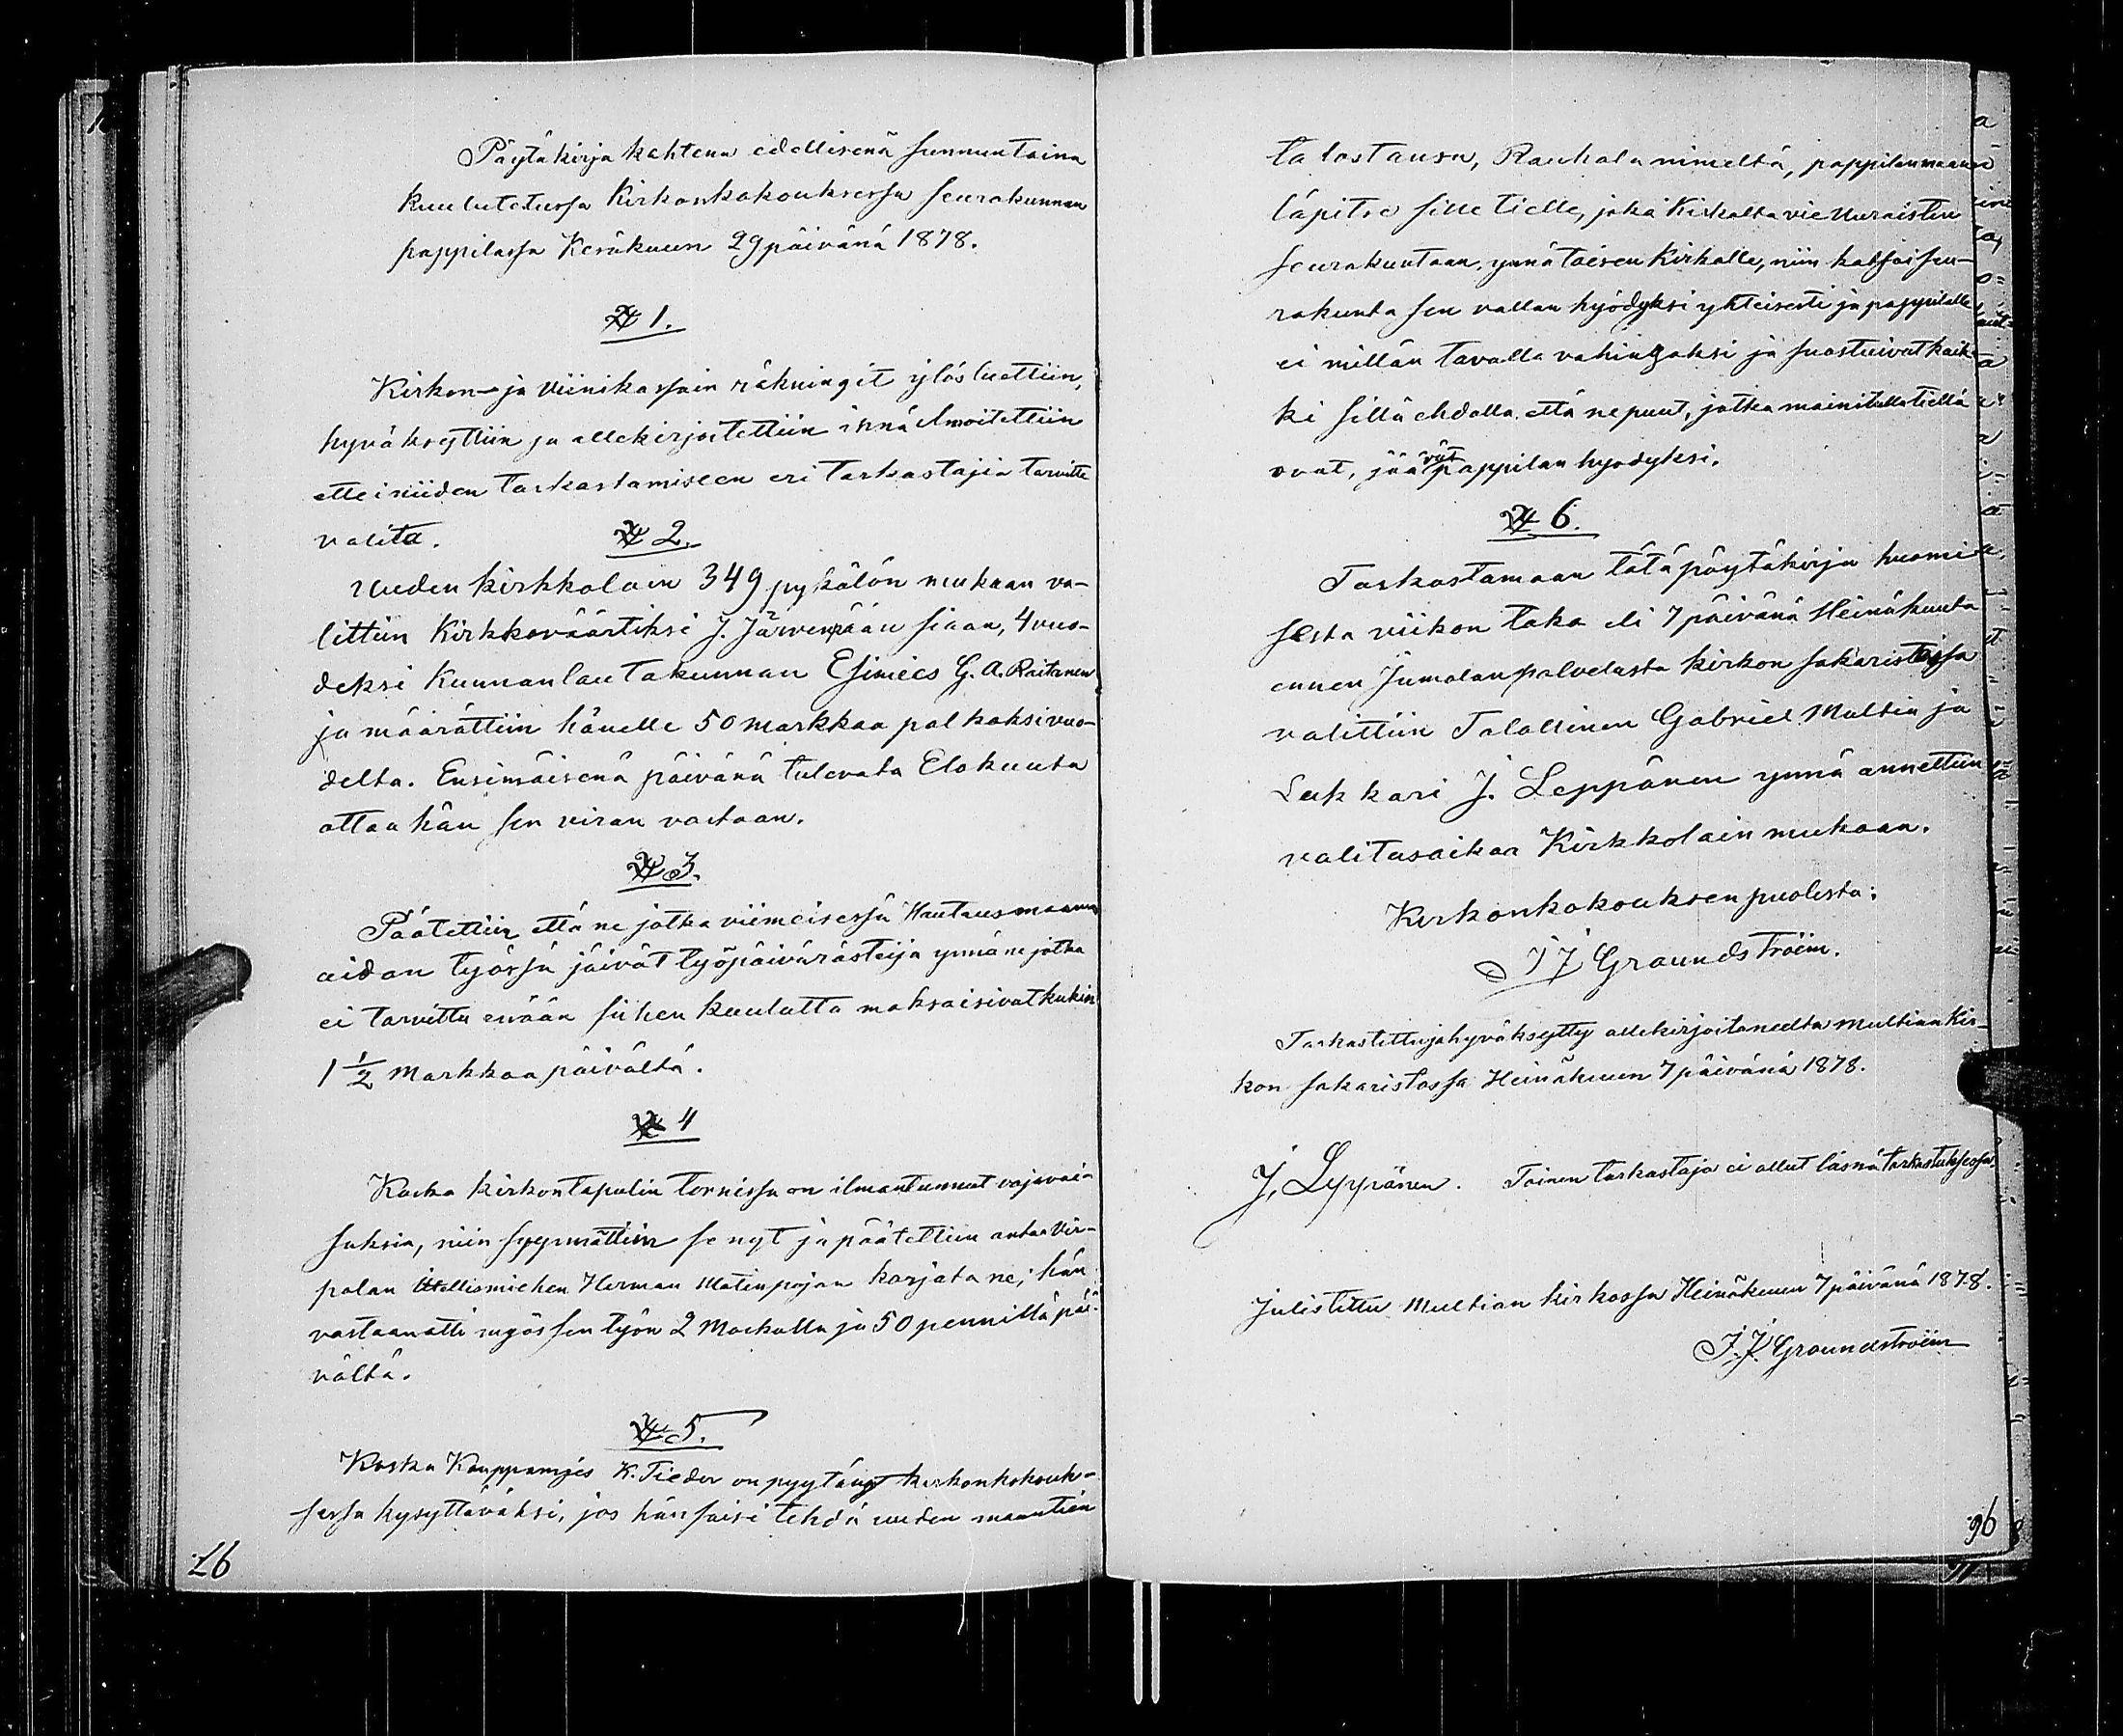 Päytäkirja kahtena edellisenä sunnuntaina
kuulutetussa Kirkonkokouksessa seurakunnan
pappilassa Kesäkuun 29 päivänä 1878.
§ 1.
Kirkon- ja Viinikassain räkningit ylösluettiin,
hyväksyttiin ja allekirjoitettiin innä ilmoitettiin
ettei niiden tarkastamiseen eri tarkastajia tarvitte
valita.
§ 2.
Uuden kirkkolain 349 pykälän mukaan va-
littiin Kirkkoväärtiksi J. Järvenpään siaan, 4 vuo-
deksi Kunnanlautakunnan Esimies G. A. Raitanen
ja määrättiin hänelle 50 markkaa palkaksi vuo-
delta. Ensimäisenä päivänä tulevata Elokuuta
ottaa hän sen viran vastaan.
§ 3.
Päätettiin että ne jotka viimeisessä Hautausmaan
aidan työssä jäivät työpäivärästeijä ynnä ne jotka
ei tarvittu enään siihen kuulutta maksaisivat kukin
1 1/2 markkaa päivältä.
§ 4
Koska kirkontapulin tornissa on ilmantunnut vajavai-
suksia, niin syynättiin se nyt ja päätettiin antaa Vir-
palan Itellismiehen Herman Matinpojan korjata ne; hän
vastaanotti myös sen työn 2 Markalla ja 50 pennillä päi-
vältä.
§ 5.
Koska Kauppamjes K. Tieder on pyytänyt kirkonkokouk-
sessa kysyttäväksi, jos hän saisi tehdä uuden maantien
26
talostansa, Rauhala nimeltä, pappilanmaan
läpitse sille tielle, joka Kirkolta vie Uuraisten
seurakuntaan, ynnä toisen Kirkolle, niin katsoi seu-
rakunta sen vallan hyödyksi yhteisesti ja pappilalle
ei millän tavalla vahingoksi ja suostuivat kaik-
ki sillä ehdolla, että ne puut, jotka mainitulla tiellä
ovat, jäävät pappilan hyödyksi.
§ 6.
Tarkastamaan tätä pöytäkirja huomi-
sesta viikon taka eli 7 päivänä Heinäkuuta
ennen Jumalanpalvelusta kirkon sakaristossa
valittiin Talollinen Gabriel Multia ja
Lukkari J. Leppänen ynnä annettiin
valitusaikaa Kirkkolain mukaan.
Kirkonkokouksen puolesta:
J J Graundström.
Tarkastettu ja hyväksytty allekirjoitaneelta Multian Kir-
kon sakaristossa Heinäkuun 7 päivänä 1878.
J. Lyppänen. Toinen tarkastaja ei ollut läsnä tarkastuksessa.
Julistettu Multian kirkossa Heinäkuun 7 päivänä 1878.
J. J. Graundström
96